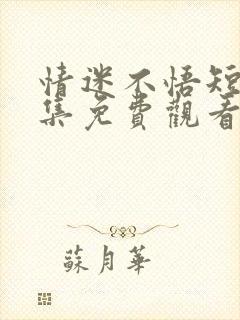 情迷不悟短
集免費觀看
蘇月華